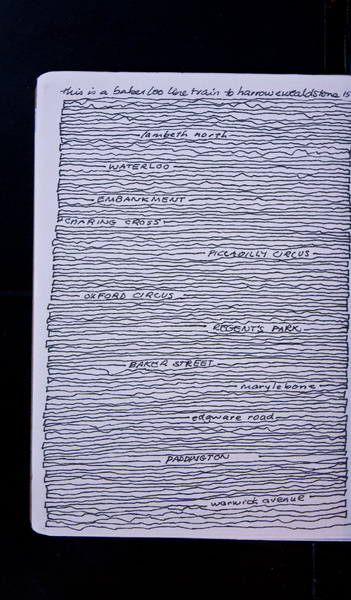 this is a bakerloo line train to harrow&wealdstone 15
lambeth north
WATERLOO
EMBANKMENT
CHARING CROSS
PICCADILLY CIRCUS
OXFORD CIRCUS
REGENT'S PARK
BAKER STREET
marylebone
edgware road
PADDINGTON
warwick avenue